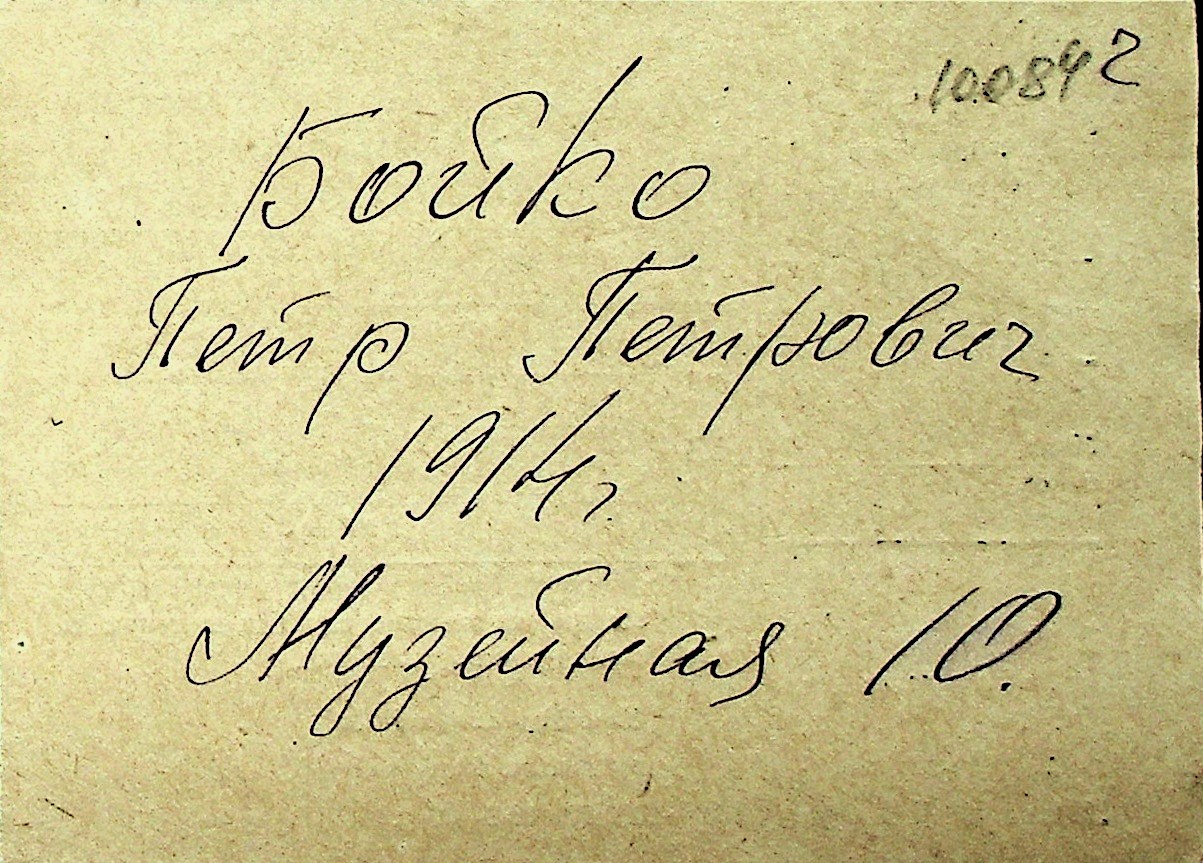 100842
Бойко
Петр Петрович
1914г.
Музейная 10.